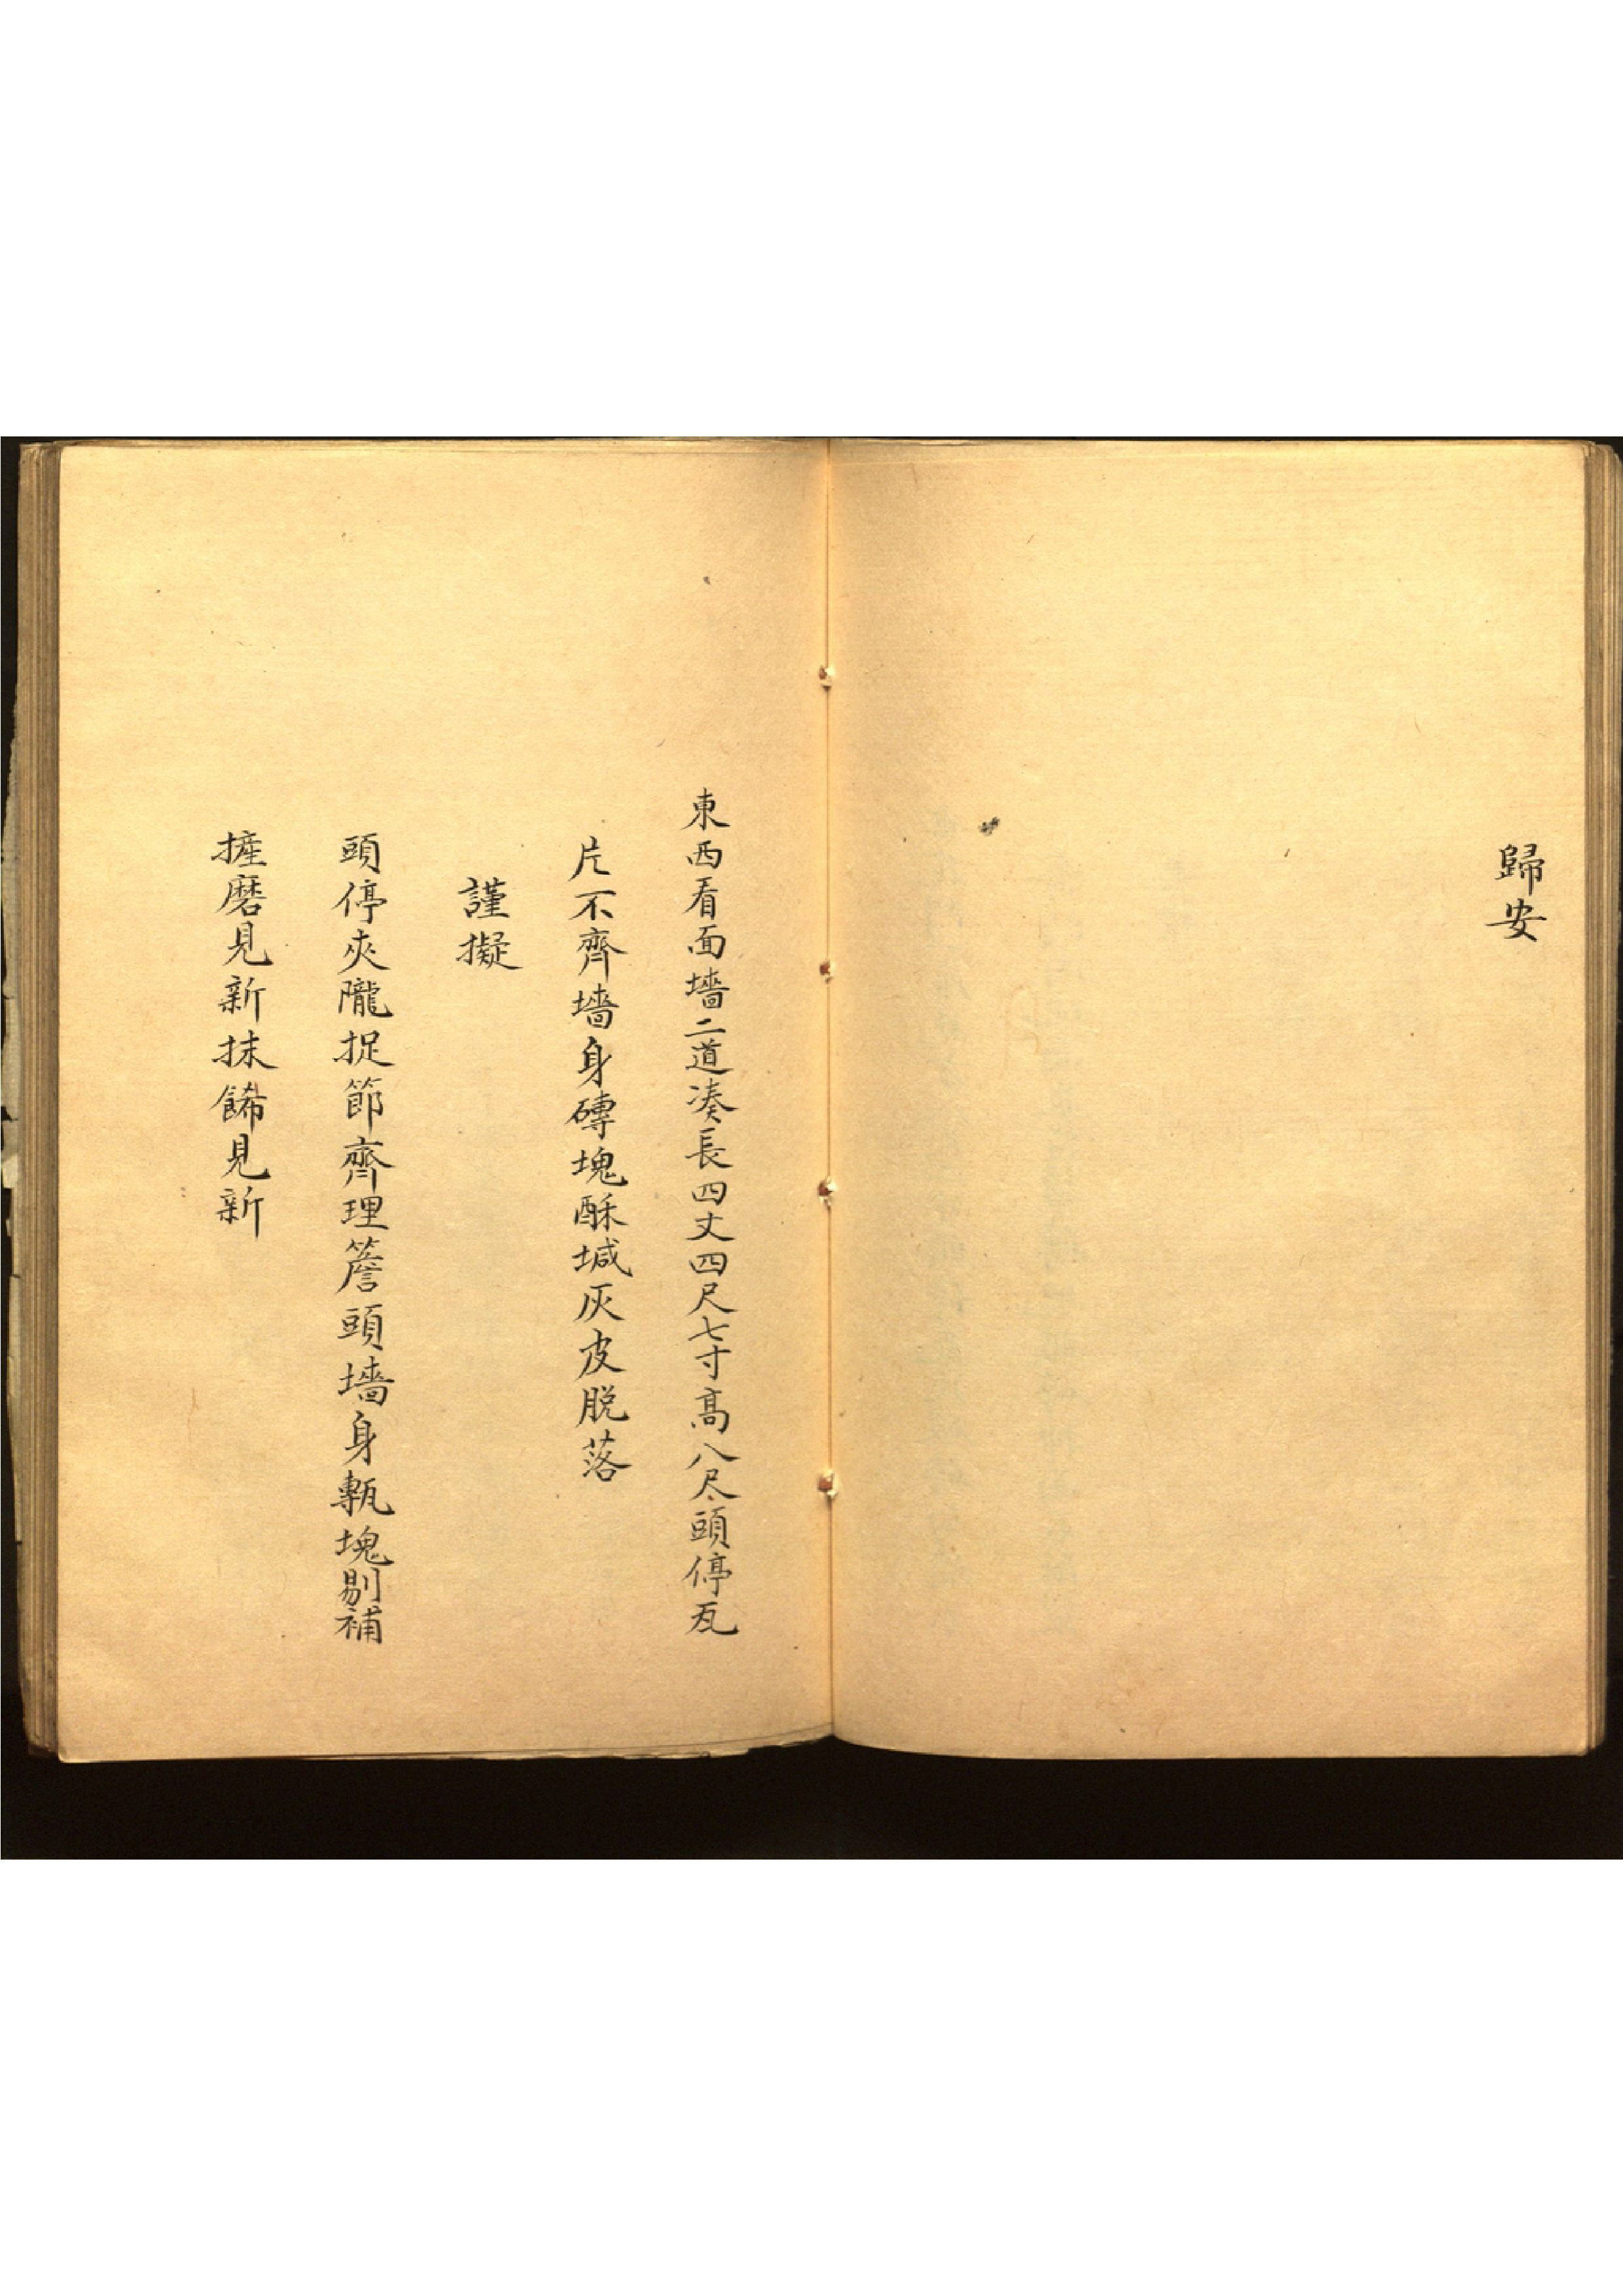 歸安
東西看面墻二道凑長四丈四尺七寸高八尺頭停瓦
片不齊墻身磚塊酥堿灰皮脱落
謹擬
頭停夾隴捉節齊理簷頭墻身甎塊剔補
摌磨見新抹餙見新